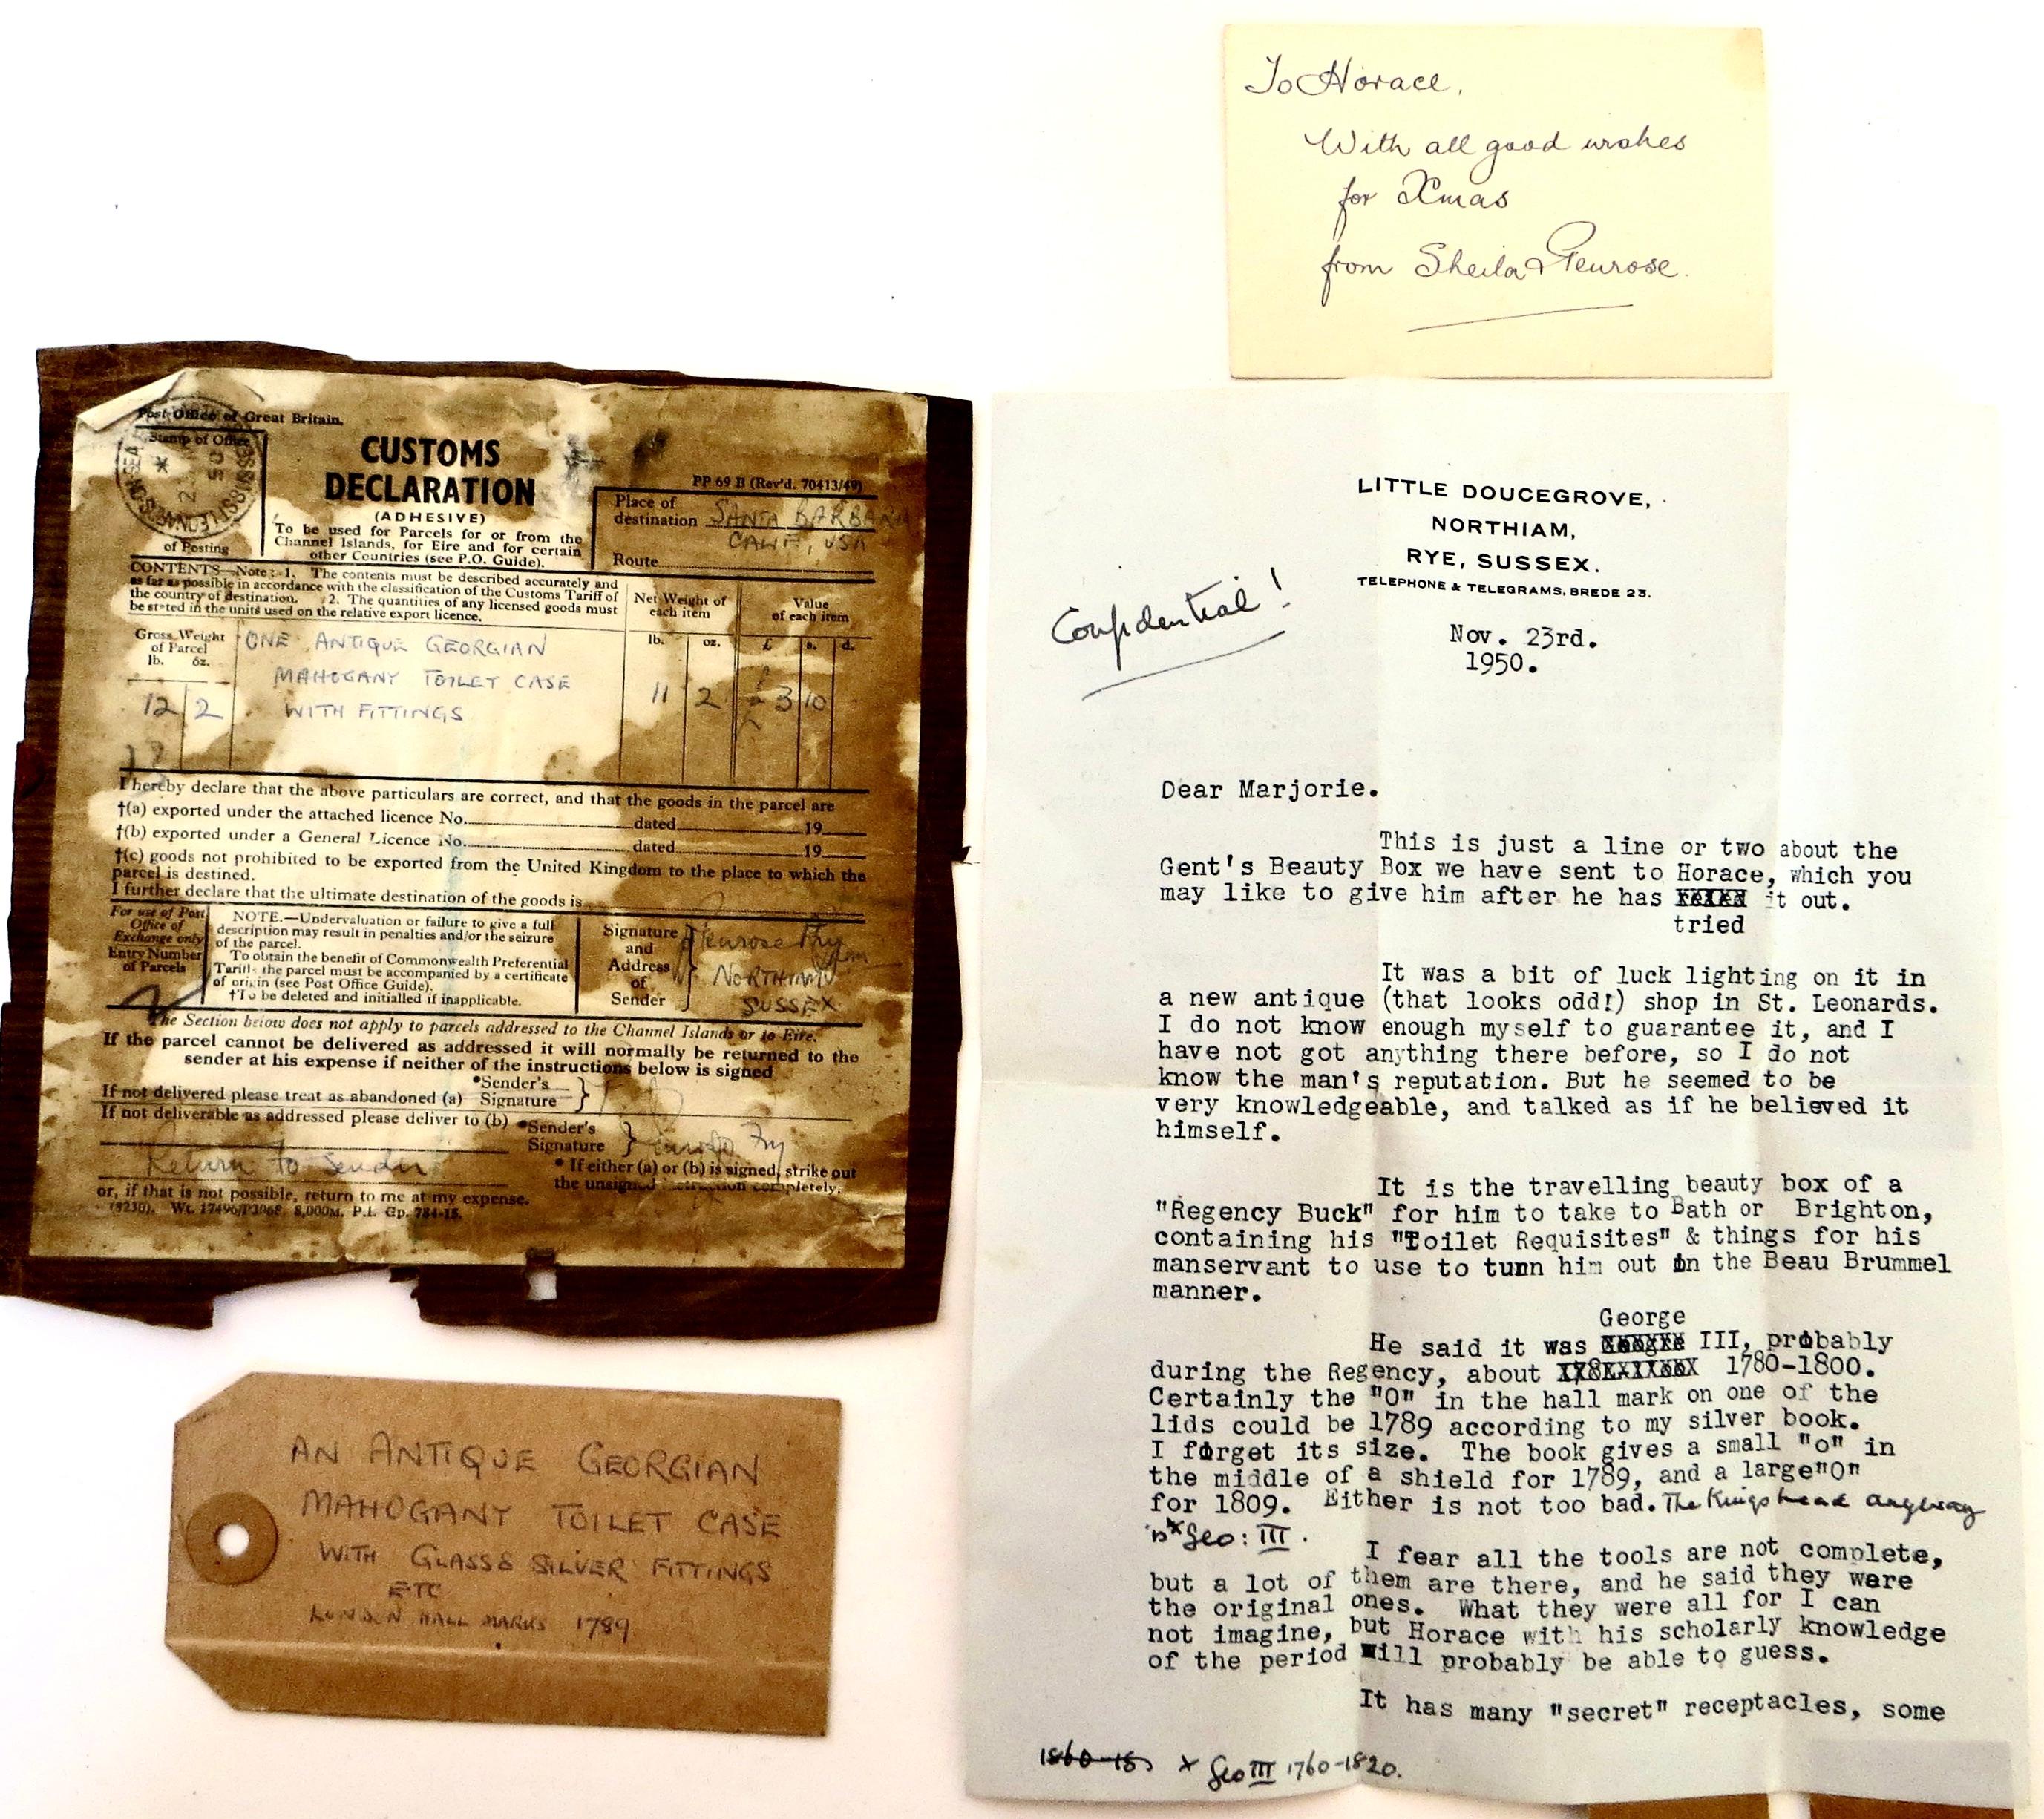 To Horace.
With all good wishes
for Xmas
from Sheila & Penrose.
Post Office of Great Britain.
Stamp of Office
of Posting
CUSTOMS
DECLARATION
(ADHESIVE)
To be used for Parcels for or from the
Channel Islands, for Eire and for certain
other Countries (see P.O. Guide).
PP 69 B (Rev'd. 70413/49)
Place of
destination SANTA BARBARA
CALIF, USA
Route
CONTENTS—Note:-1. The contents must be described accurately and
as far as possible in accordance with the classification of the Customs Tariff of
the country of destination. 2. The quantities of any licensed goods must
be stated in the units used on the relative export licence.
Net Weight of
each item
Value
of each item
Gross Weight
of Parcel
lb. oz.
lb. oz. £ s. d.
ONE ANTIQUE GEORGIAN
MAHOGANY TOILET CASE
WITH FITTINGS
12 2
11 2 3 10
I hereby declare that the above particulars are correct, and that the goods in the parcel are
†(a) exported under the attached licence No. dated 19
†(b) exported under a General Licence No. dated 19
†(c) goods not prohibited to be exported from the United Kingdom to the place to which the
parcel is destined.
I further declare that the ultimate destination of the goods is
For use of Post
Office of
Exchange only
Entry Number
of Parcels
NOTE.—Undervaluation or failure to give a full
description may result in penalties and/or the seizure
of the parcel.
To obtain the benefit of Commonwealth Preferential
Tariffs the parcel must be accompanied by a certificate
of origin (see Post Office Guide).
†To be deleted and initialled if inapplicable.
Signature
and
Address
of
Sender
Penrose Fry
NORTHIAM
SUSSEX
The Section below does not apply to parcels addressed to the Channel Islands or to Eire.
If the parcel cannot be delivered as addressed it will normally be returned to the
sender at his expense if neither of the instructions below is signed
If not delivered please treat as abandoned (a) *Sender's
Signature
If not deliverable as addressed please deliver to (b) *Sender's
Signature Penrose Fry
Return to Sender
* If either (a) or (b) is signed, strike out
the unsigned instruction completely.
or, if that is not possible, return to me at my expense.
(9230). Wt. 17496/P3068. 8,000M. P.I. Gp. 784-15.
AN ANTIQUE GEORGIAN
MAHOGANY TOILET CASE
WITH GLASS & SILVER FITTINGS
ETC
LONDON HALL MARKS 1789
LITTLE DOUCEGROVE,
NORTHIAM,
RYE, SUSSEX.
TELEPHONE & TELEGRAMS, BREDE 23.
Confidential!
Nov. 23rd.
1950.
Dear Marjorie.
This is just a line or two about the
Gent's Beauty Box we have sent to Horace, which you
may like to give him after he has it out.
tried
It was a bit of luck lighting on it in
a new antique (that looks odd!) shop in St. Leonards.
I do not know enough myself to guarantee it, and I
have not got anything there before, so I do not
know the man's reputation. But he seemed to be
very knowledgeable, and talked as if he believed it
himself.
It is the travelling beauty box of a
"Regency Buck" for him to take to Bath or Brighton,
containing his "Toilet Requisites" & things for his
manservant to use to turn him out in the Beau Brummel
manner.
George
He said it was III, probably
during the Regency, about 1780-1800.
Certainly the "O" in the hall mark on one of the
lids could be 1789 according to my silver book.
I forget its size. The book gives a small "o" in
the middle of a shield for 1789, and a large"O"
for 1809. Either is not too bad. The Kings head anyway
is x Geo: III.
I fear all the tools are not complete,
but a lot of them are there, and he said they were
the original ones. What they were all for I can
not imagine, but Horace with his scholarly knowledge
of the period will probably be able to guess.
It has many "secret" receptacles, some
x Geo III 1760-1820.